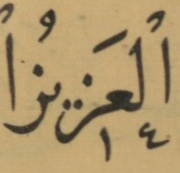 اُلْعَزيزُ اُ
١٤